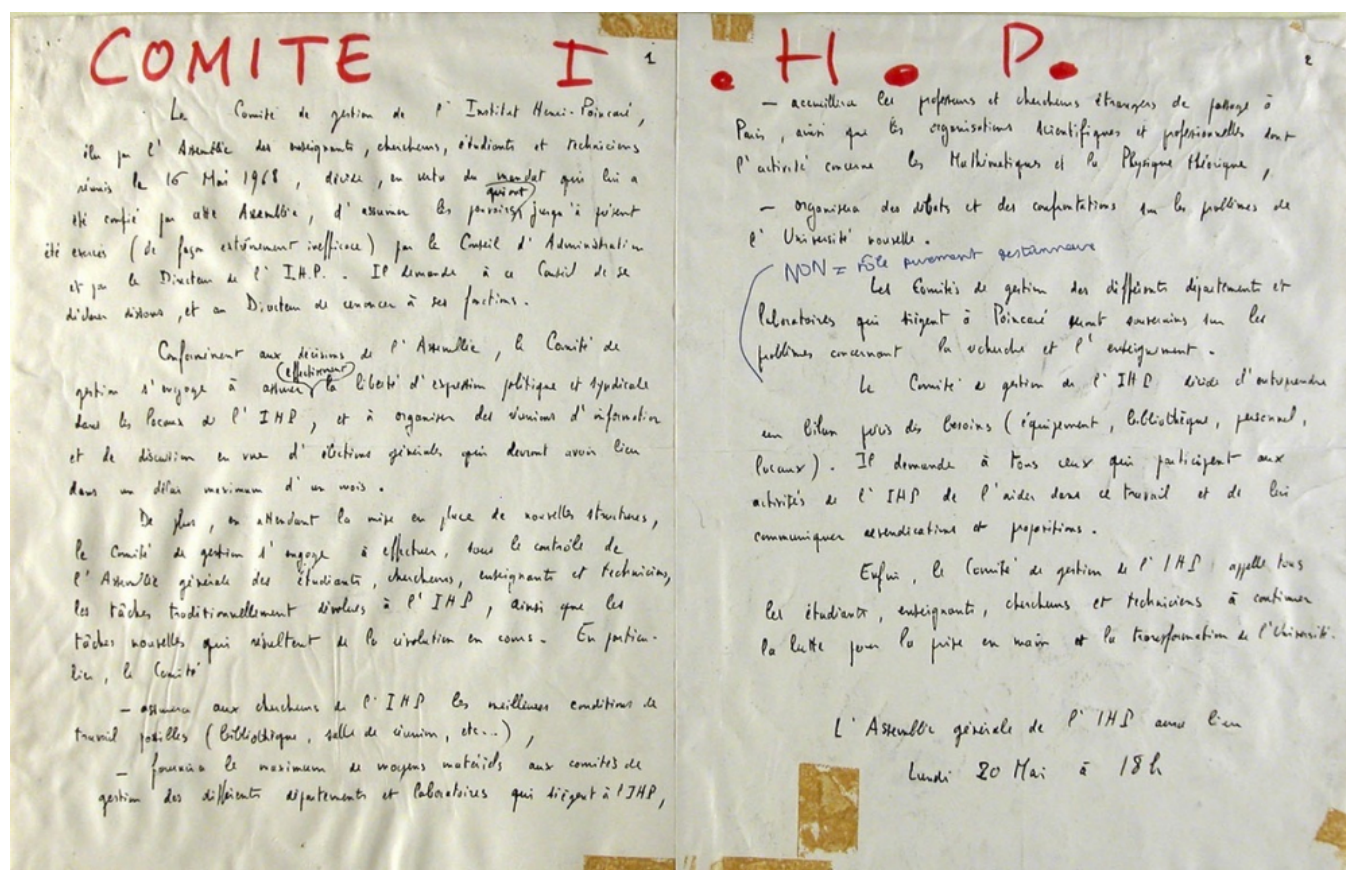 COMITE I.H.P.
1
Le Comité de gestion de l'Institut Henri-Poincaré,
élu par l'Assemblée des enseignants, chercheurs, étudiants et techniciens
réunis le 16 Mai 1968, décide, en vertu du mandat qui lui a
été confié par cette Assemblée, d'assumer les pouvoirs qui ont jusqu'à présent
été exercés (de façon extrêmement inefficace) par le Conseil d'Administration
et par le Directeur de l'I.H.P.. Il demande à ce Conseil de se
déclarer dissous, et au Directeur de renoncer à ses fonctions.
Conformément aux décisions de l'Assemblée, le Comité de
gestion s'engage à assurer effectivement la liberté d'expression politique et syndicale
dans les locaux de l'IHP, et à organiser des réunions d'information
et de discussion en vue d'élections générales qui devront avoir lieu
dans un délai maximum d'un mois.
De plus, en attendant la mise en place de nouvelles structures,
le Comité de gestion s'engage à effectuer, sous le contrôle de
l'Assemblée générale des étudiants, chercheurs, enseignants et techniciens,
les tâches traditionnellement dévolues à l'IHP, ainsi que les
tâches nouvelles qui résultent de la révolution en cours. En particu-
lier, le Comité
— assurera aux chercheurs de l'IHP les meilleures conditions de
travail possibles (bibliothèque, salle de réunion, etc...),
— fournira le maximum de moyens matériels aux comités de
gestion des différents départements et laboratoires qui siègent à l'IHP,
2
— accueillera les professeurs et chercheurs étrangers de passage à
Paris, ainsi que les organisations scientifiques et professionnelles dont
l'activité concerne les Mathématiques et la Physique théorique,
— organisera des débats et des confrontations sur les problèmes de
l'Université nouvelle.
NON = rôle purement gestionnaire
Les Comités de gestion des différents départements et
laboratoires qui siègent à Poincaré seront souverains sur les
problèmes concernant la recherche et l'enseignement.
Le Comité de gestion de l'IHP décide d'entreprendre
un bilan précis des besoins (équipement, bibliothèque, personnel,
locaux). Il demande à tous ceux qui participent aux
activités de l'IHP de l'aider dans ce travail et de lui
communiquer revendications et propositions.
Enfin, le Comité de gestion de l'IHP appelle tous
les étudiants, enseignants, chercheurs et techniciens à continuer
la lutte pour la prise en main et la transformation de l'Université.
L'Assemblée générale de l'IHP aura lieu
Lundi 20 Mai à 18h